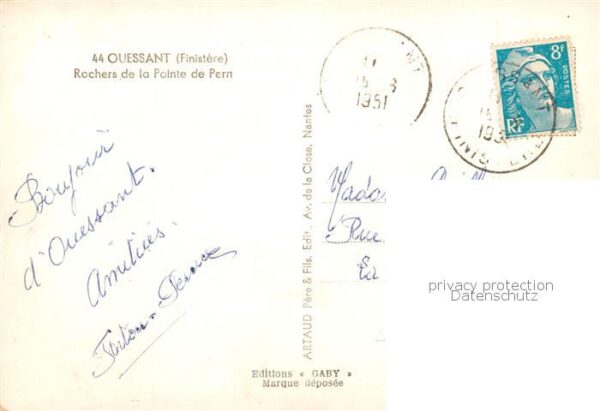 44 OUESSANT (Finistère)
Rochers de la Pointe de Pern
Bonjour
d'Ouessant.
Amitiés.
ARTAUD Père & Fils, Edit., Av. de la Close, Nantes
Editions « GABY »
Marque déposée
15 - 8
1951
8F
POSTES
RF
Madame
Rue
La
privacy protection
Datenschutz